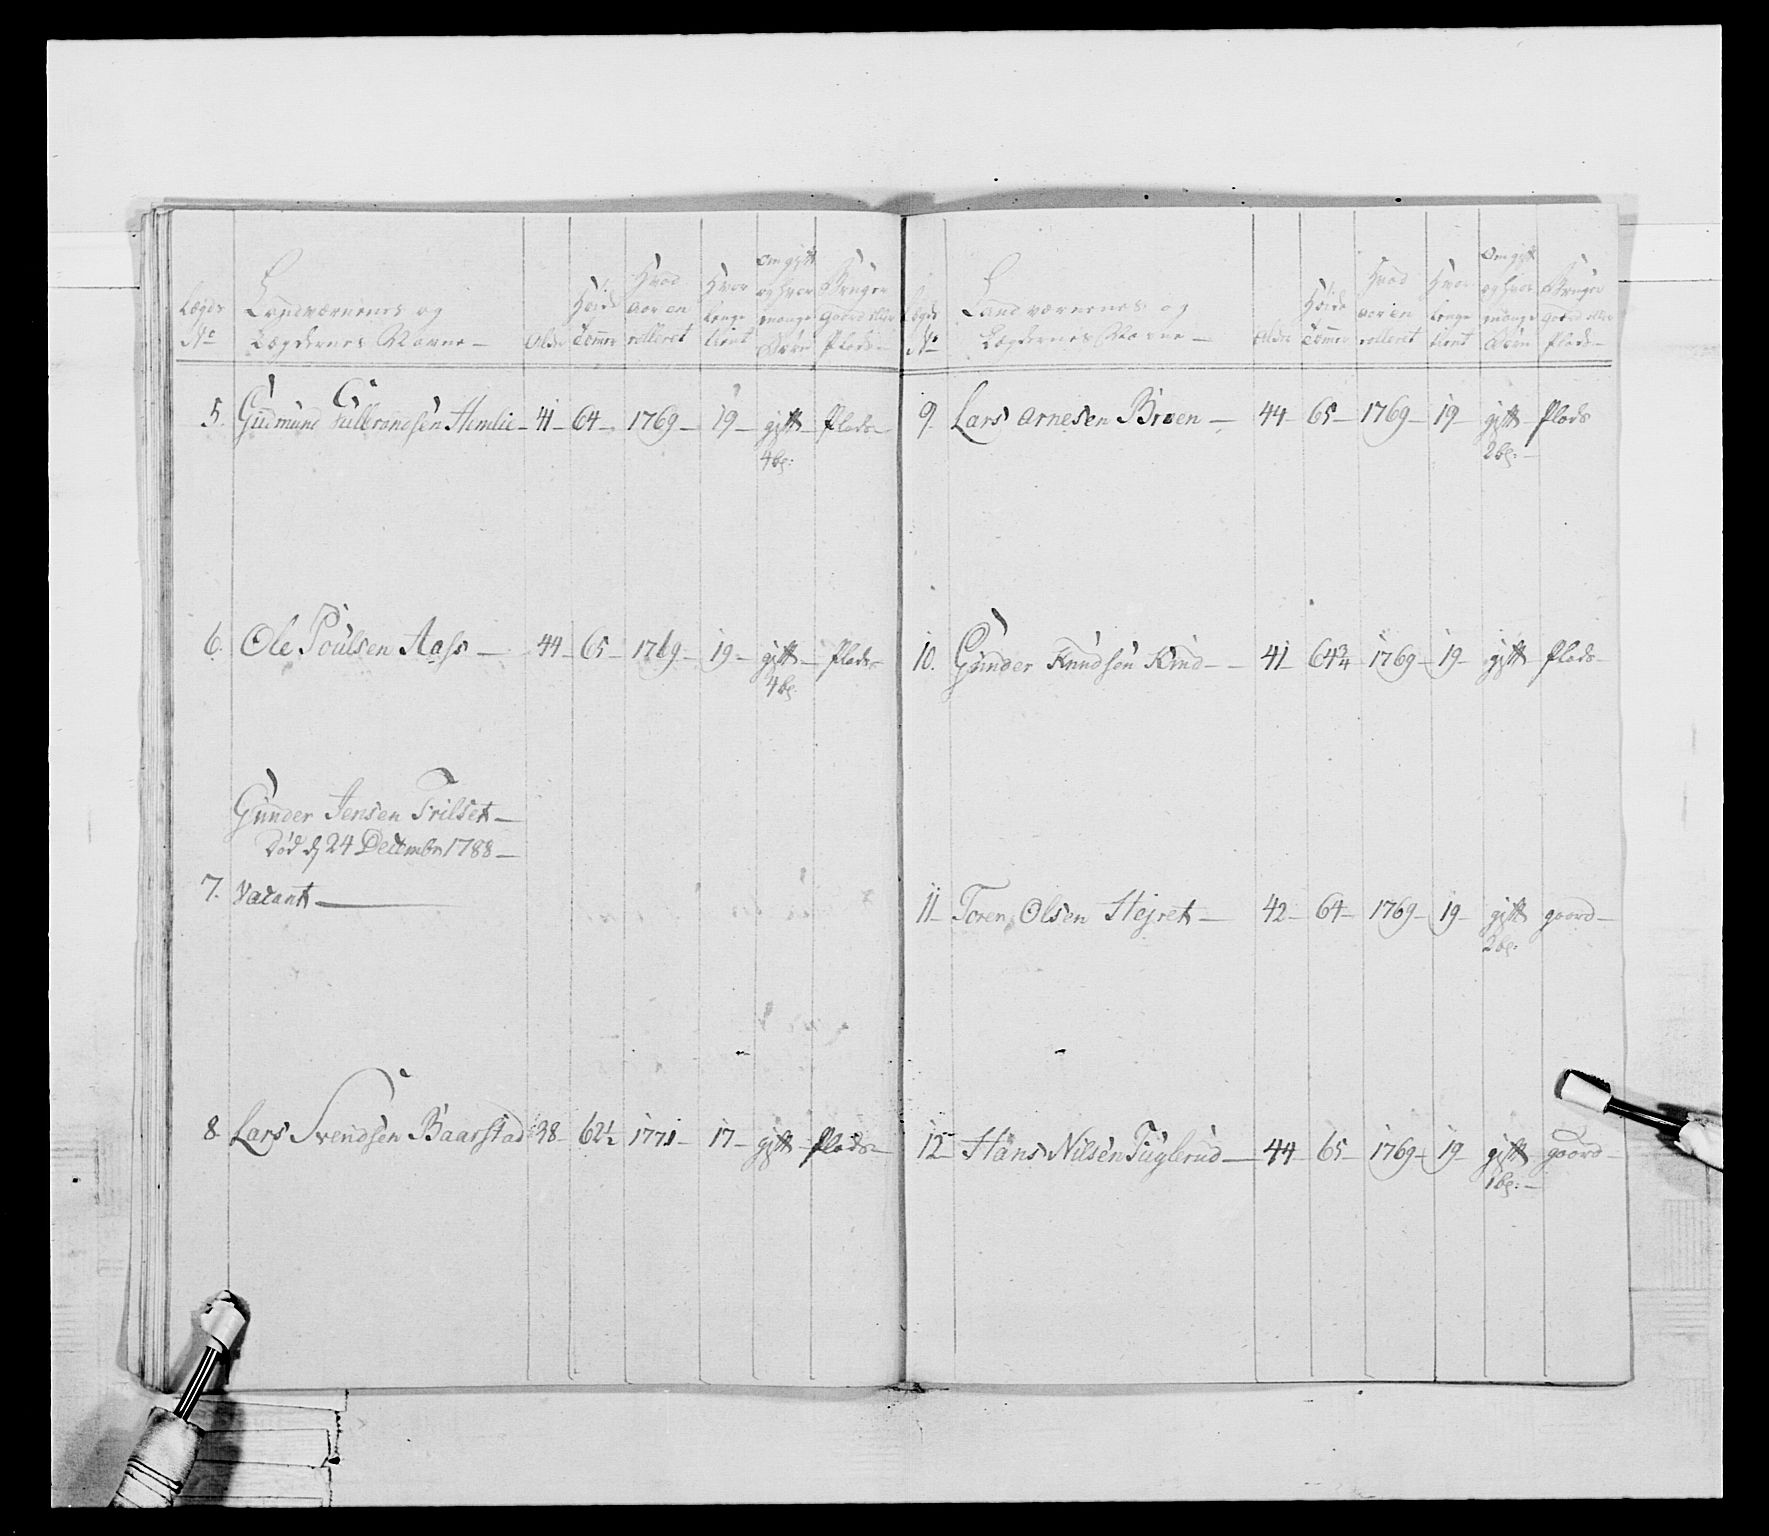 Lægds No
Landværnenes og Lægdernes Navne —
Alder
Høide Tommer
Hvad aar en rolleret
Hvor lenge tient
Om gift og hvor mange Børn
Bruger Gaard eller Plads —
5. Gudmund Gulbrandsen Hemlie — 41 — 64 — 1769 — 19 — gift — Plads —
4 b:
6. Ole Poulsen Aass — 44 — 65 — 1769 — 19 — gift — Plads —
4 b:
Gunder Jensen Trilset —
Død d 24 Decembr 1788 —
7. Vacant —
8. Lars Svendsen Baarstad 38 — 62½ 1771 — 17 — gift — Plads —
Lægds No
Landværnenes og Lægdernes Navne —
Alder
Høide Tommer
Hvad aar en rolleret
Hvor lenge tient
Om gift og hvor mange Børn
Bruger Gaard eller Plads —
9. Lars Arnesen Broen — 44 — 65 — 1769 — 19 — gift — Plads
2 b: —
10. Gunder Knudsen Rud — 41 64¾ 1769 — 19 — gift Plads —
11 — Toren Olsen Stejret — 42 — 64 — 1769 — 19 — gift gaard —
2 b:
12 — Hans Nilsen Fuglerud — 44 — 65 — 1769 — 19 — gift gaard —
1 b: —